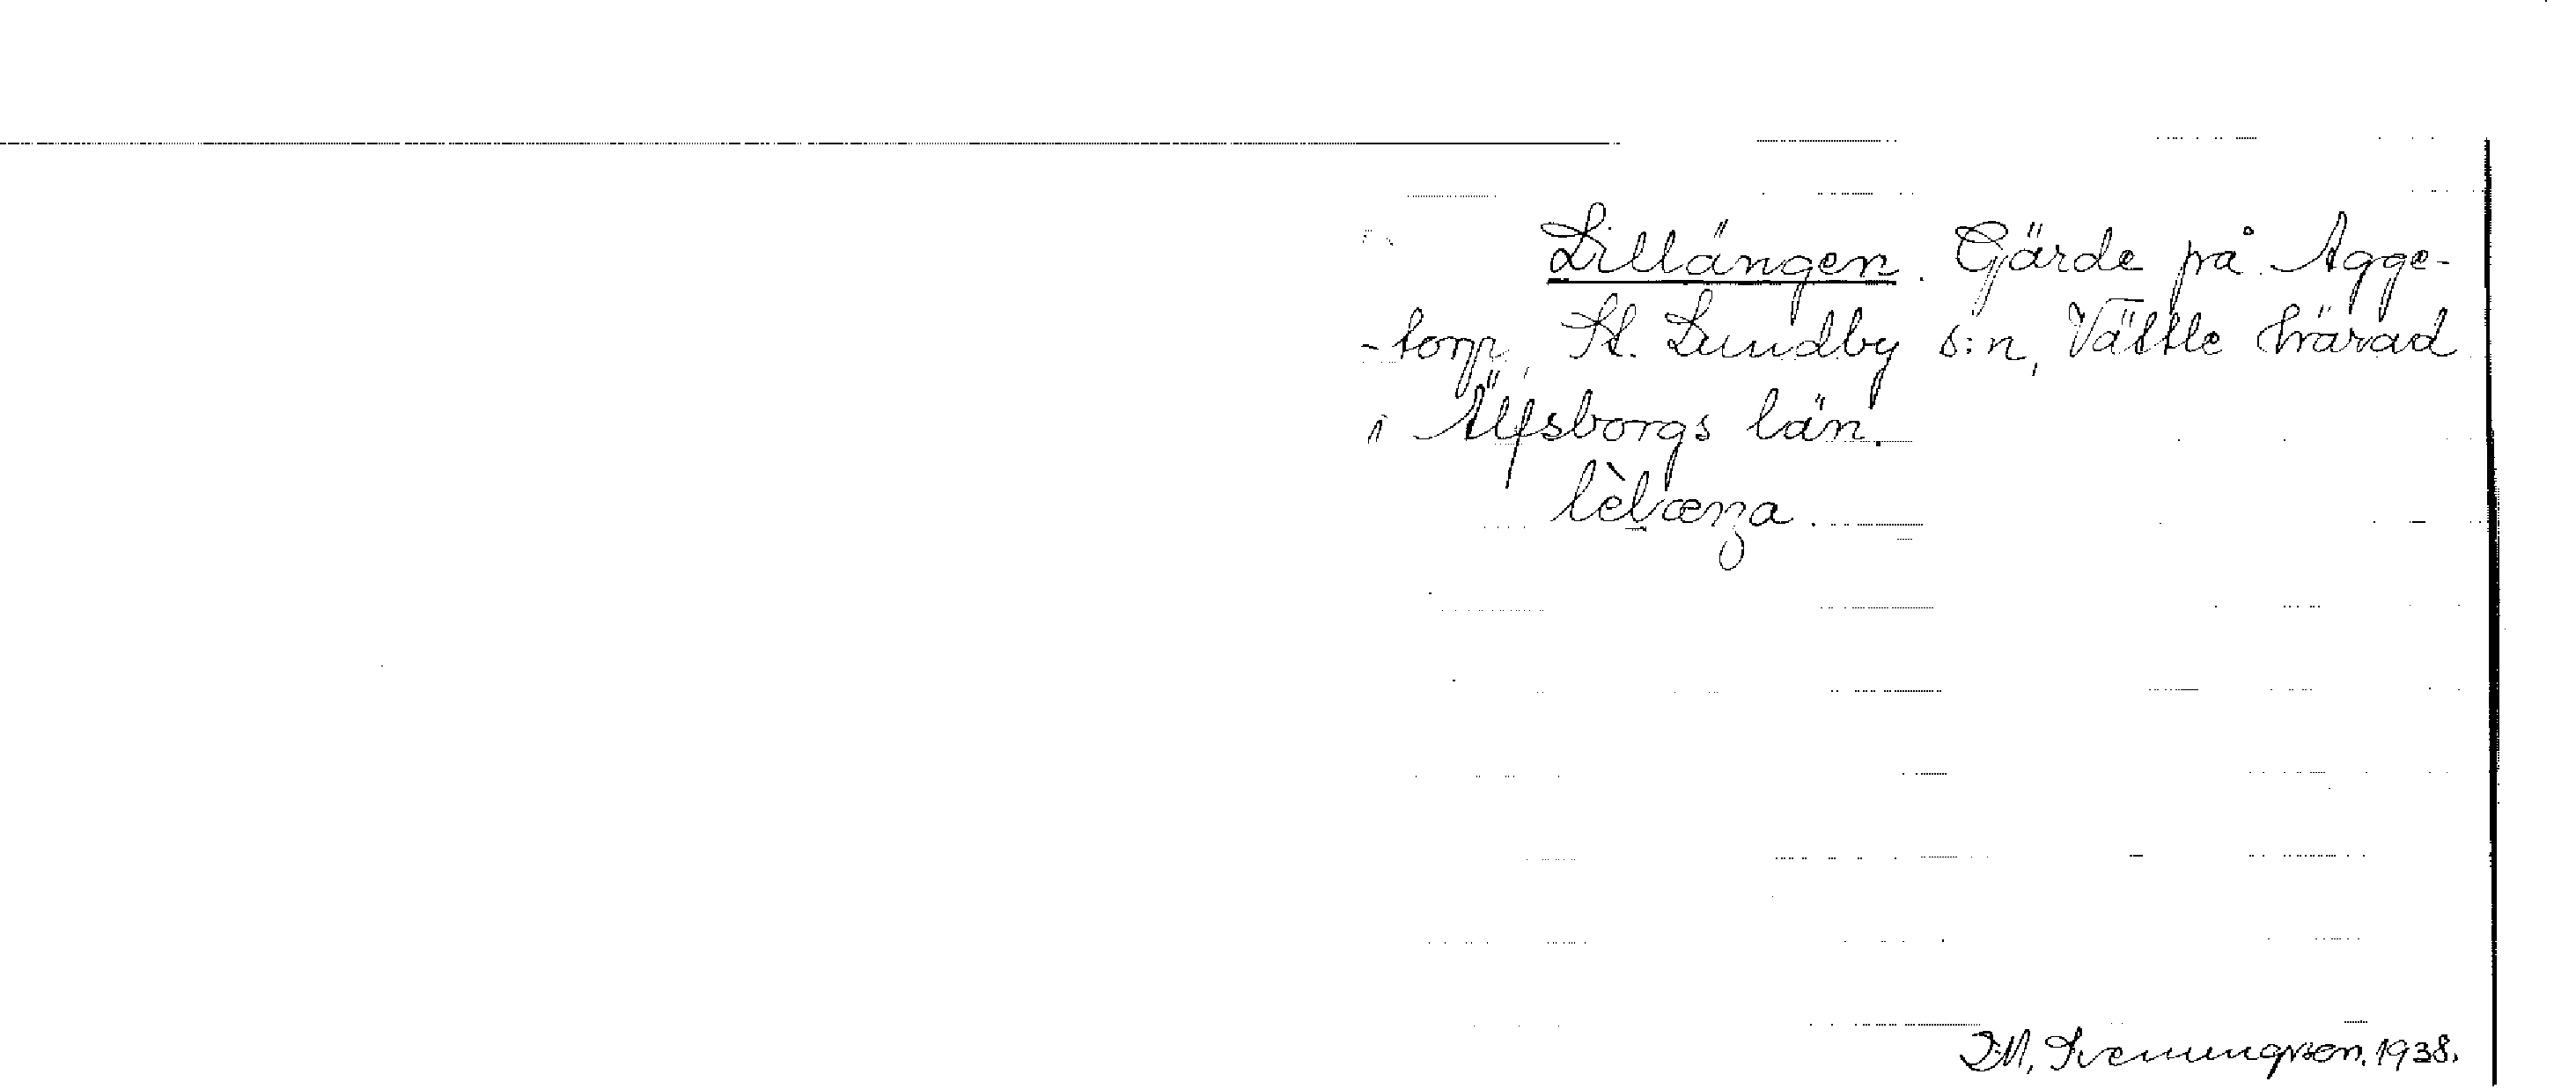 Lillängen. Gärde på Agge-
-torp, St. Lundby s:n, Vättle härad
i Älfsborgs län.
lèlæŋa.
J.M. Svenungsson. 1938.